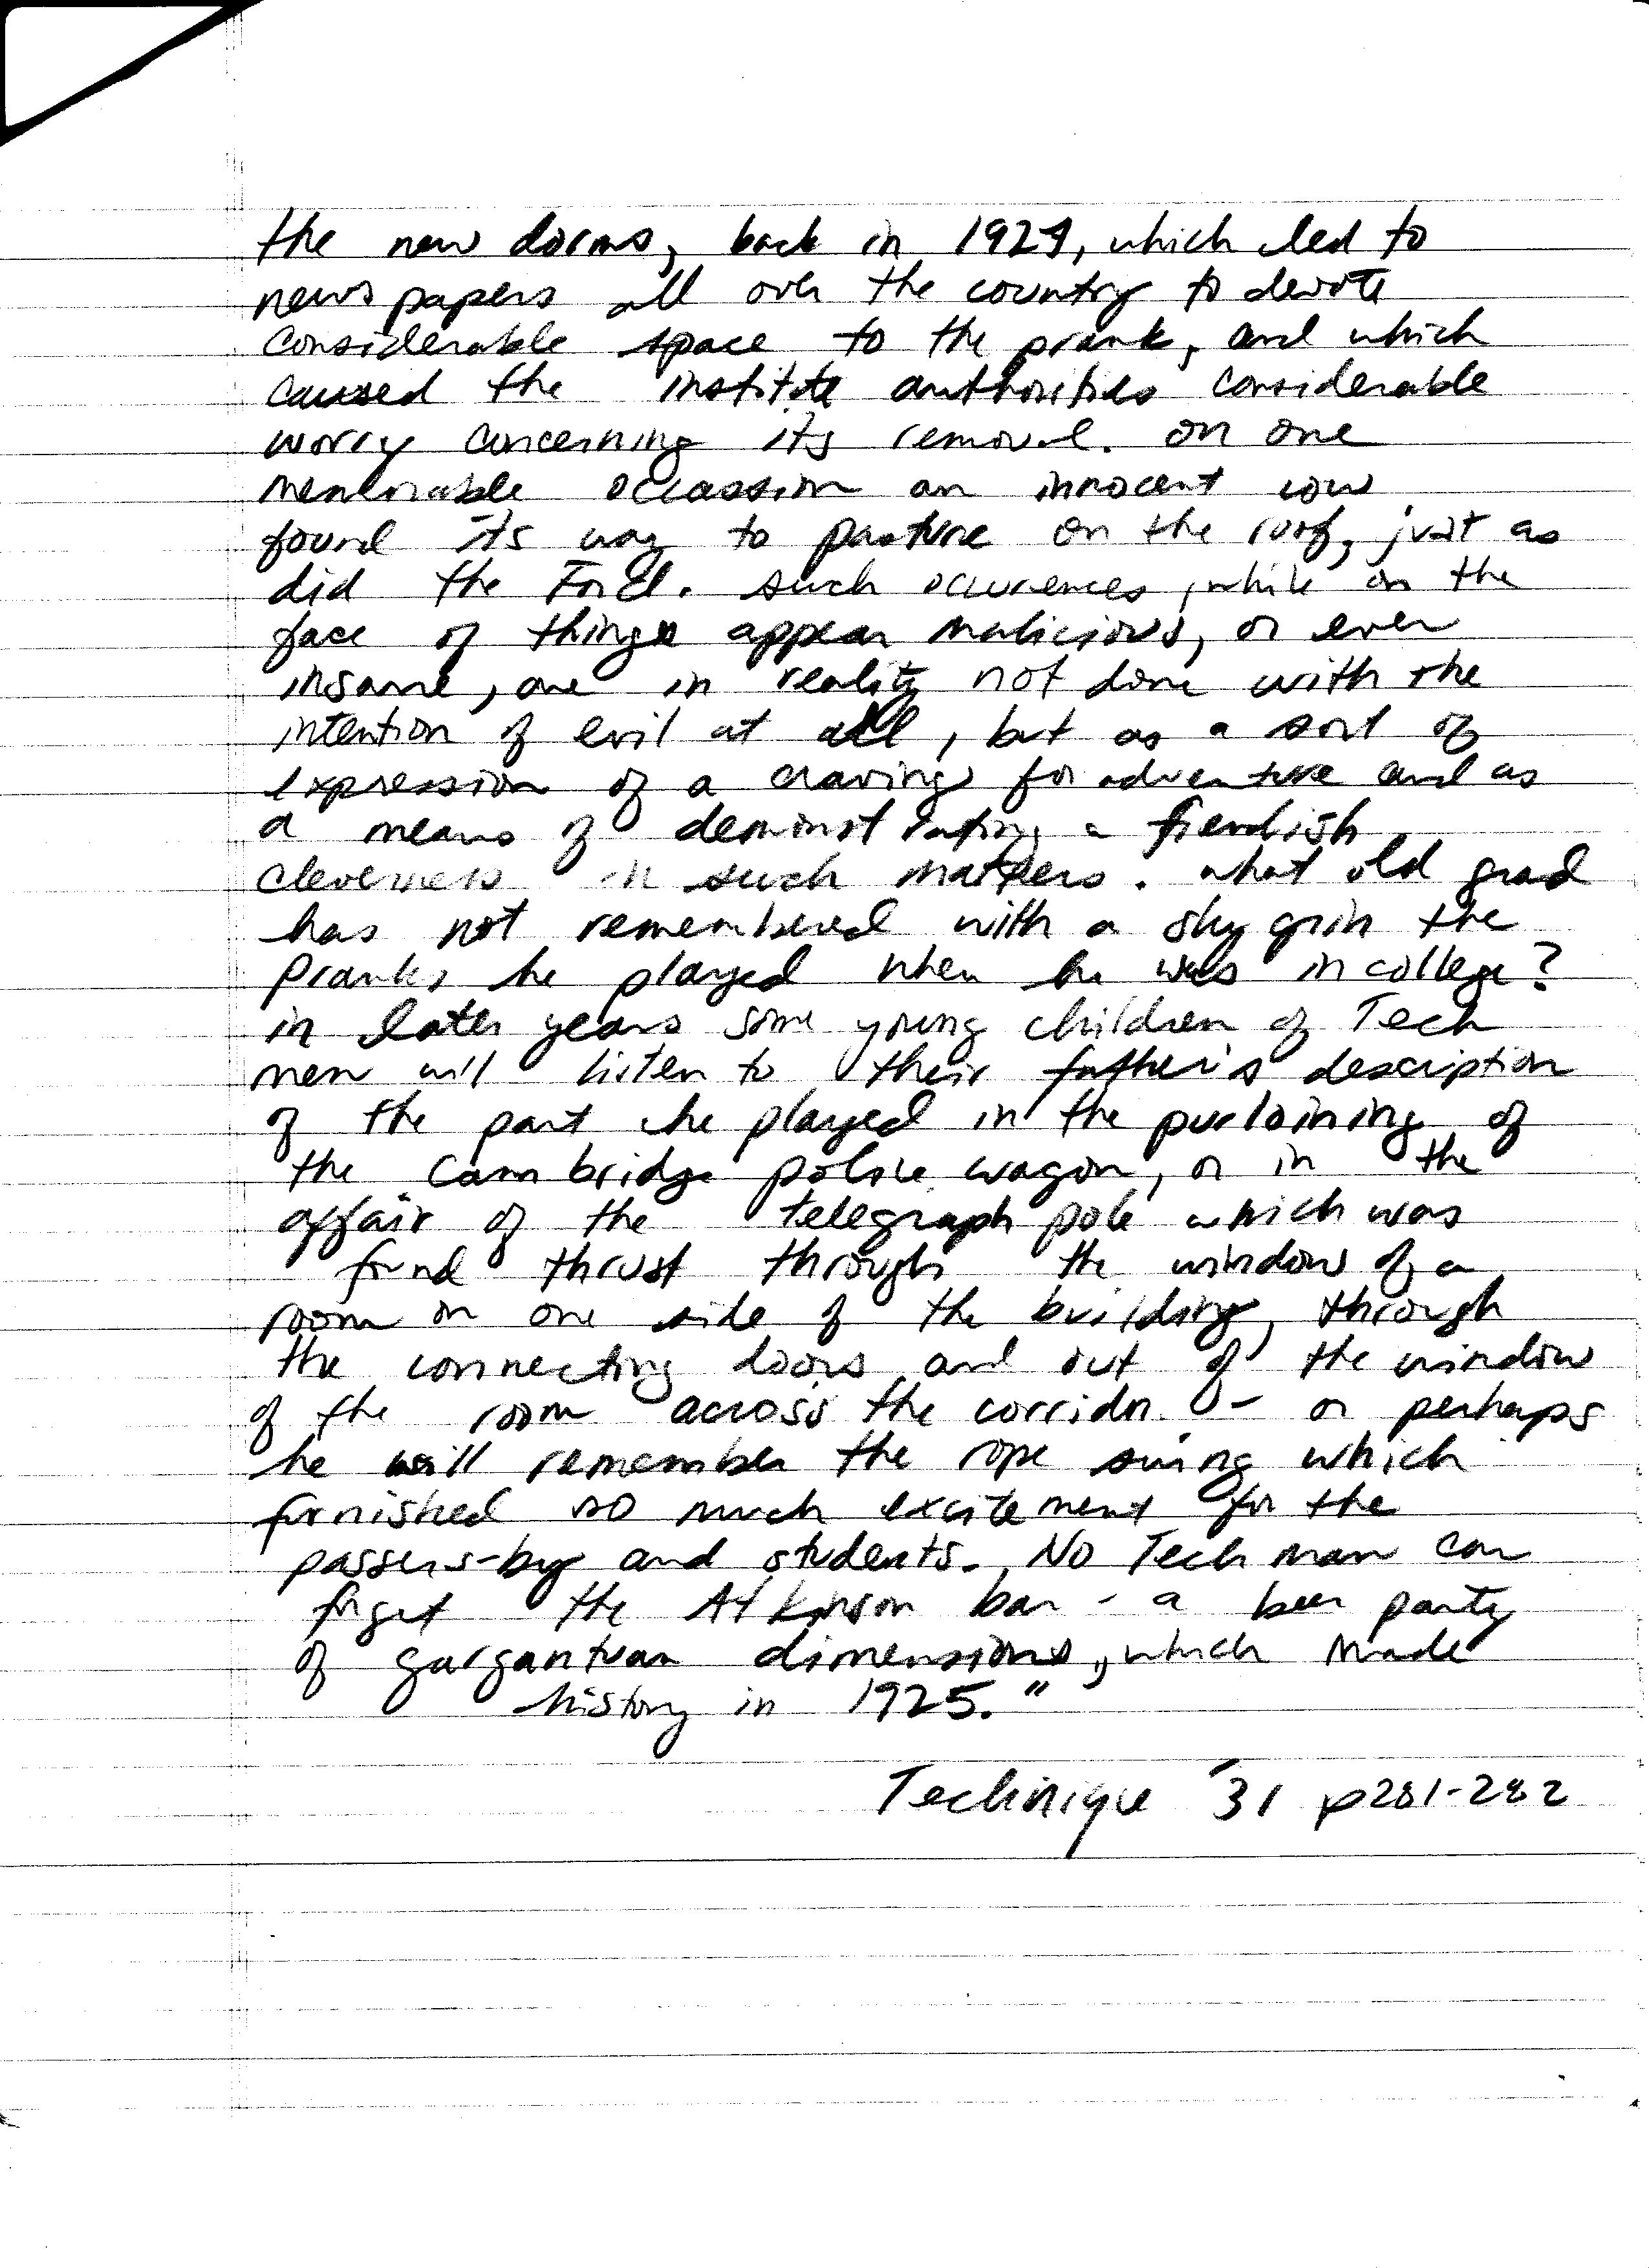 the new dorms, back in 1929, which led to
newspapers all over the country to devote
considerable space to the prank, and which
caused the institute authorities considerable
worry concerning its removal. on one
memorable occassion an innocent cow
found its way to pasture on the roof, just as
did the Ford. such occurences, while on the
face of things appear malicious, or even
insane, are in reality not done with the
intention of evil at all, but as a sort of
expression of a craving for adventure and as
a means of demonstrating a fiendish
cleverness in such matters. what old grad
has not remembered with a shy grin the
pranks he played when he was in college?
in later years some young children of Tech
men will listen to their father's description
of the part he played in the purloining of
the Cambridge police wagon, or in the
affair of the telegraph pole which was
found thrust through the window of a
room on one side of the building, through
the connecting doors and out of the window
of the room across the corridor. - or perhaps
he will remember the rope swing which
furnished so much excitement for the
passers-by and students. No Tech man can
forget the Atkinson bar - a beer party
of gargantuan dimensions, which made
history in 1925."
Technique '31 p281-282